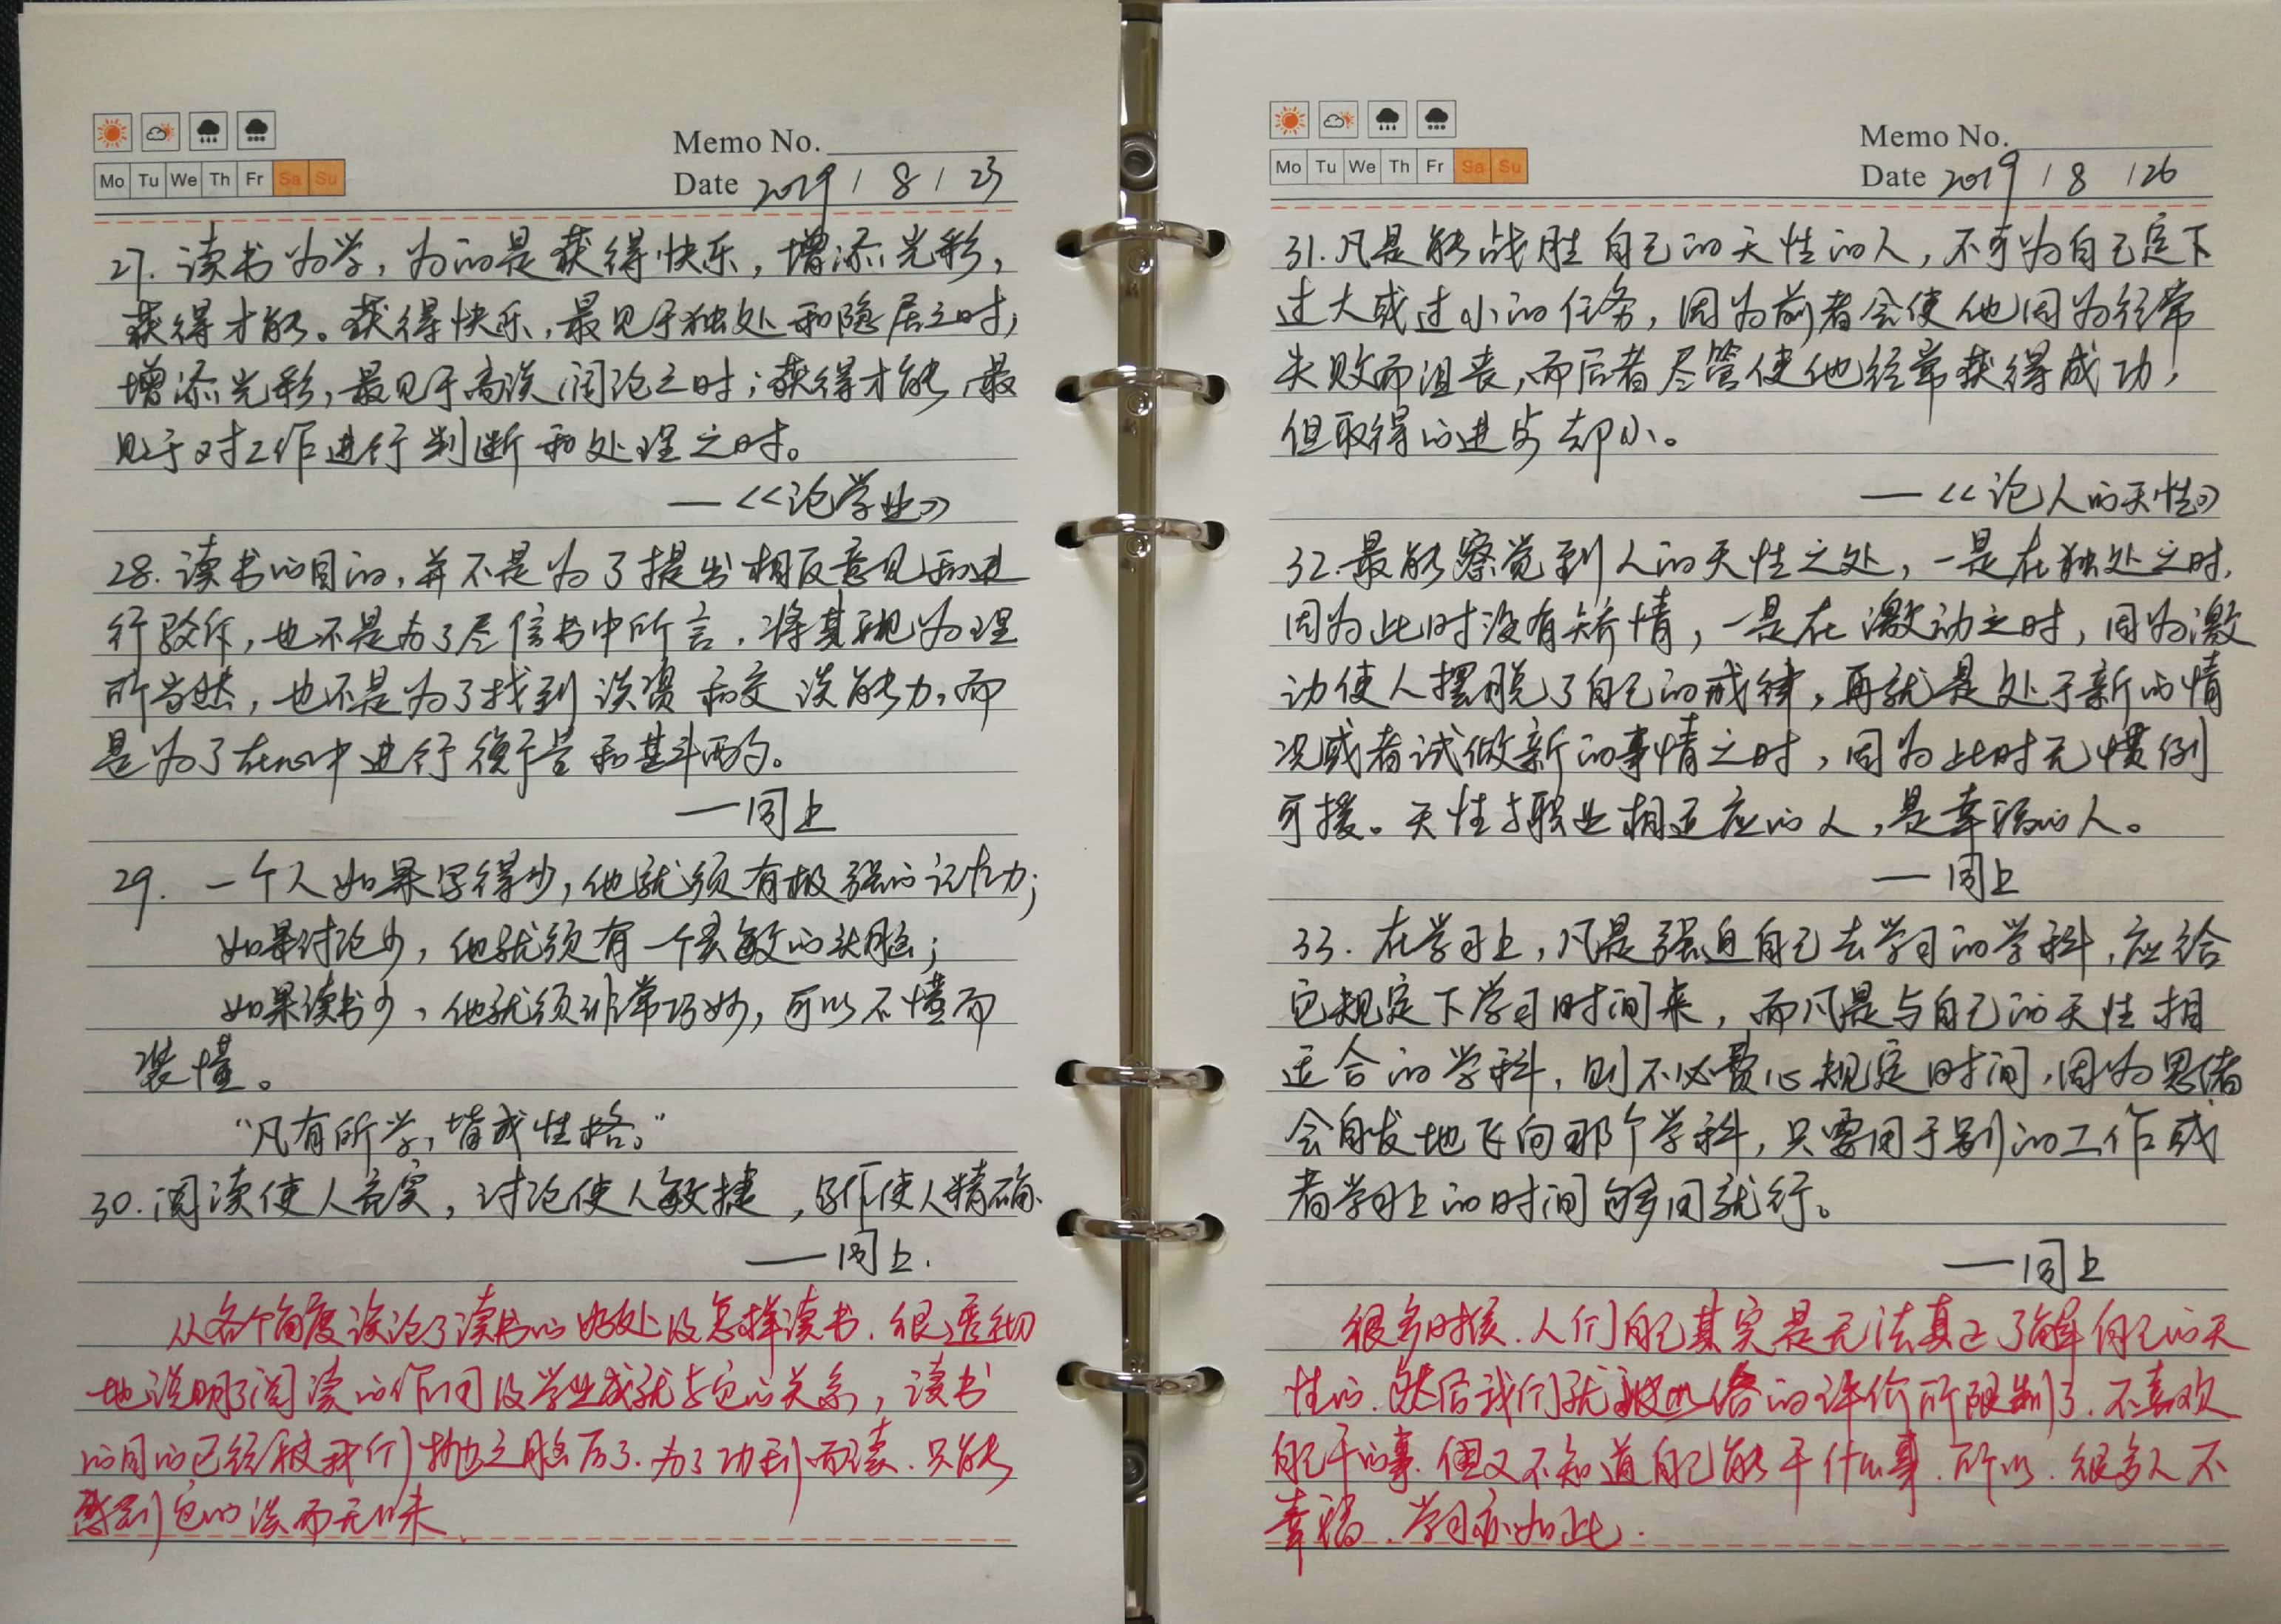 Mo Tu We Th Fr Sa Su
Memo No.
Date 2019 / 8 / 23
27. 读书为学，为的是获得快乐，增添光彩，
获得才能。获得快乐，最见于独处和隐居之时；
增添光彩，最见于高谈阔论之时；获得才能，最
见于对工作进行判断和处理之时。
—<<论学业>>
28. 读书的目的，并不是为了提出相反意见和进
行驳斥，也不是为了尽信书中所言，将其视为理
所当然，也不是为了找到谈资和交谈能力，而
是为了在心中进行衡量和斟酌。
—同上
29. 一个人如果写得少，他就须有极强的记忆力；
如果讨论少，他就须有一个灵敏的头脑；
如果读书少，他就须非常巧妙，可以不懂而
装懂。
“凡有所学，皆成性格。”
30. 阅读使人充实，讨论使人敏捷，写作使人精确.
——同上.
从各个角度谈论了读书的好处及怎样读书.很透彻
地说明了阅读的作用及学业成就与它的关系，读书
的目的已经被我们抛之脑后了.为了功利而读.只能
感到它的淡而无味.
Mo Tu We Th Fr Sa Su
Memo No.
Date 2019 / 8 / 26
31. 凡是能战胜自己的天性的人，不可为自己定下
过大或过小的任务，因为前者会使他因为经常
失败而沮丧，而后者尽管使他经常获得成功，
但取得的进步却小。
—<<论人的天性>>
32. 最能察觉到人的天性之处，一是在独处之时，
因为此时没有矫情，一是在激动之时，因为激
动使人摆脱了自己的戒律，再就是处于新的情
况或者试做新的事情之时，因为此时无惯例
可援。天性与职业相适应的人，是幸福的人。
—同上
33. 在学习上，凡是强迫自己去学习的学科，应给
它规定下学习时间来，而凡是与自己的天性相
适合的学科，则不必费心规定时间，因为思绪
会自发地飞向那个学科，只要用于别的工作或
者学习上的时间够用就行。
—同上
很多时候.人们自己其实是无法真正了解自己的天
性的.然后我们就被世俗的评价所限制了.不喜欢
自己干的事.但又不知道自己能干什么事.所以.很多人不
幸福.学习亦如此.